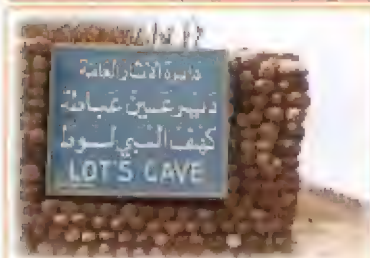 دائرة الآثار العامة
دير عين عباطة
كهف النبي لوط
LOT'S CAVE